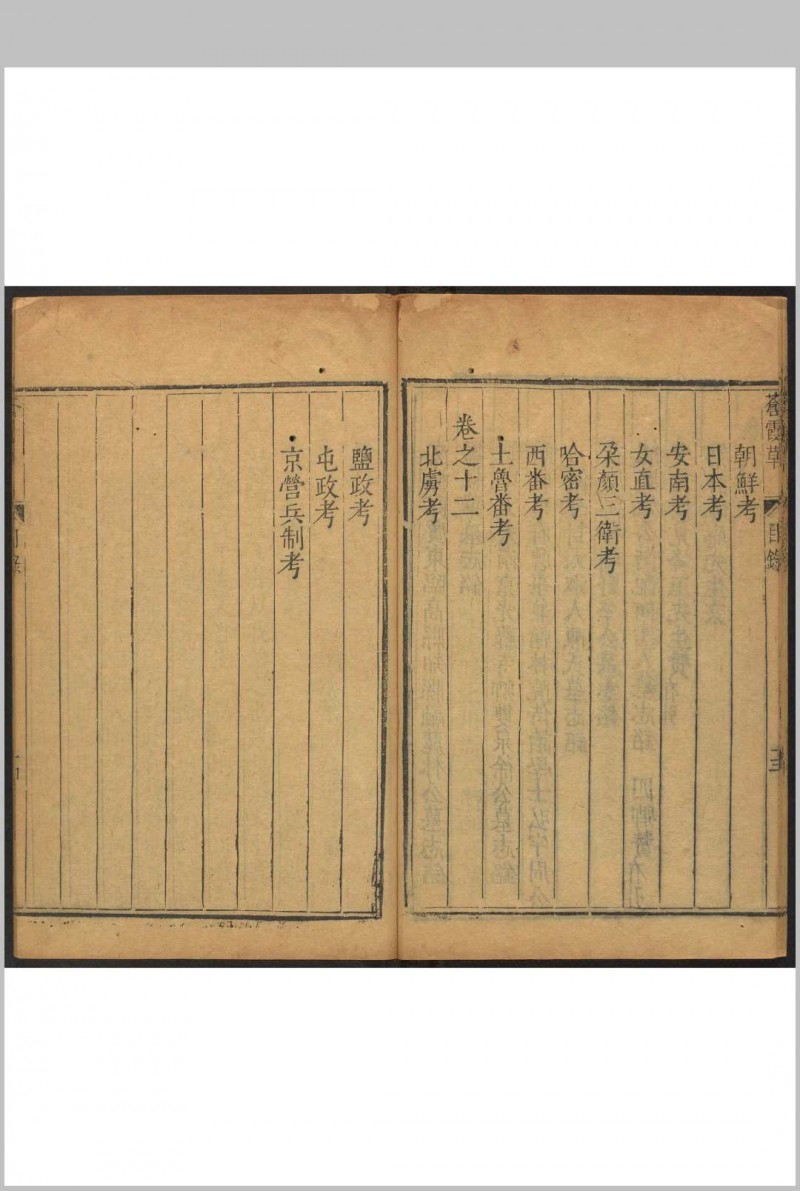 蒼霞草
目錄
朝鮮考
日本考
安南考
女直考
朶顏三衛考
哈密考
西番考
土魯番考
卷之十二
北虜考
鹽政考
屯政考
京營兵制考